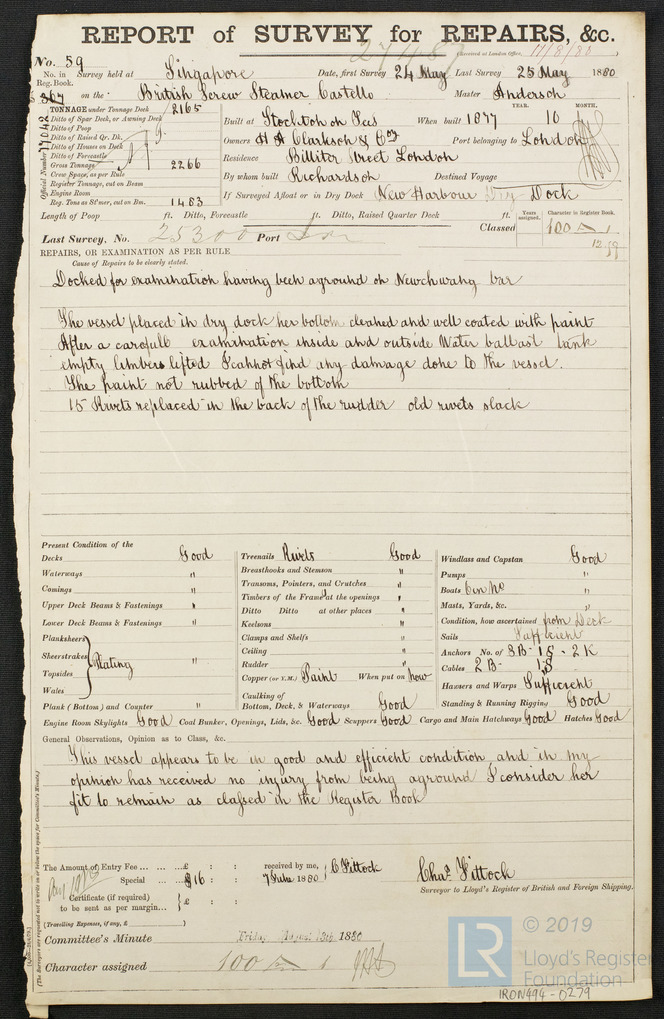 REPORT of SURVEY for REPAIRS, &c.
27487
(Received at London Office, 17/8/80)
No. 59
No. in Survey held at Singapore Date, first Survey 24 May Last Survey 25 May 1880
Reg. Book.
867 on the British Screw Steamer Castello Master Anderson
TONNAGE under Tonnage Deck 2165
Ditto of Spar Deck, or Awning Deck
Ditto of Poop
Ditto of Raised Qr. Dk.
Ditto of Houses on Deck
Ditto of Forecastle
Gross Tonnage 2266
Crew Space, as per Rule
Register Tonnage, cut on Beam
Engine Room
Reg. Tons as St'mer, cut on Bm. 1483
Official Number
YEAR. MONTH.
Built at Stockton on Tees When built 1877 10
Owners H A Clarkson & Coy Port belonging to London
Residence Billiter Street London
By whom built Richardson Destined Voyage
If Surveyed Afloat or in Dry Dock New Harbour Dry Dock
Length of Poop ft. Ditto, Forecastle ft. Ditto, Raised Quarter Deck ft.
Years assigned. Character in Register Book.
Classed 100 A 1
12.79
Last Survey, No. 25300 Port Lon
REPAIRS, OR EXAMINATION AS PER RULE
Cause of Repairs to be clearly stated.
Docked for examination having been aground on Newchwang bar
The vessel placed in dry dock her bottom cleaned and well coated with paint
After a carefull examination inside and outside Water ballast tank
empty limbers lifted I cannot find any damage done to the vessel.
The paint not rubbed of the bottom
15 Rivets replaced in the back of the rudder old rivets slack
Present Condition of the
Decks Good
Waterways "
Comings "
Upper Deck Beams & Fastenings "
Lower Deck Beams & Fastenings "
Planksheers
Sheerstrakes
Topsides
Wales
Plating "
Plank (Bottom) and Counter "
Treenails Rivets Good
Breasthooks and Stemson "
Transoms, Pointers, and Crutches "
Timbers of the Frame at the openings "
Ditto Ditto at other places "
Keelsons "
Clamps and Shelfs "
Ceiling "
Rudder "
Copper (or Y.M.) Paint When put on now
Caulking of
Bottom, Deck, & Waterways Good
Windlass and Capstan Good
Pumps "
Boats "
Masts, Yards, &c. "
Condition, how ascertained from Deck
Sails Sufficient
Anchors No. of 3B - 1S - 2K
Cables 2B - 1S
Hawsers and Warps Sufficient
Standing & Running Rigging Good
Engine Room Skylights Good Coal Bunker, Openings, Lids, &c. Good Scuppers Good Cargo and Main Hatchways Good Hatches Good
General Observations, Opinion as to Class, &c.
This vessel appears to be in good and efficient condition and in my
opinion has received no injury from being aground I consider her
fit to remain as classed in the Register Book
The Amount of Entry Fee ... ... £ : : received by me,
Special ... $16 : : 7 June 1880 C Pittock
Certificate (if required) £ : :
to be sent as per margin...
(Travelling Expenses, if any, £ )
Chas. Pittock
Surveyor to Lloyd's Register of British and Foreign Shipping.
Committee's Minute Friday August 13th 1880
Character assigned 100 A 1
(The Surveyors are requested not to write on or below the space for Committee's Minute.)
LR
© 2019
Lloyd's Register
Foundation
IRON494-0279